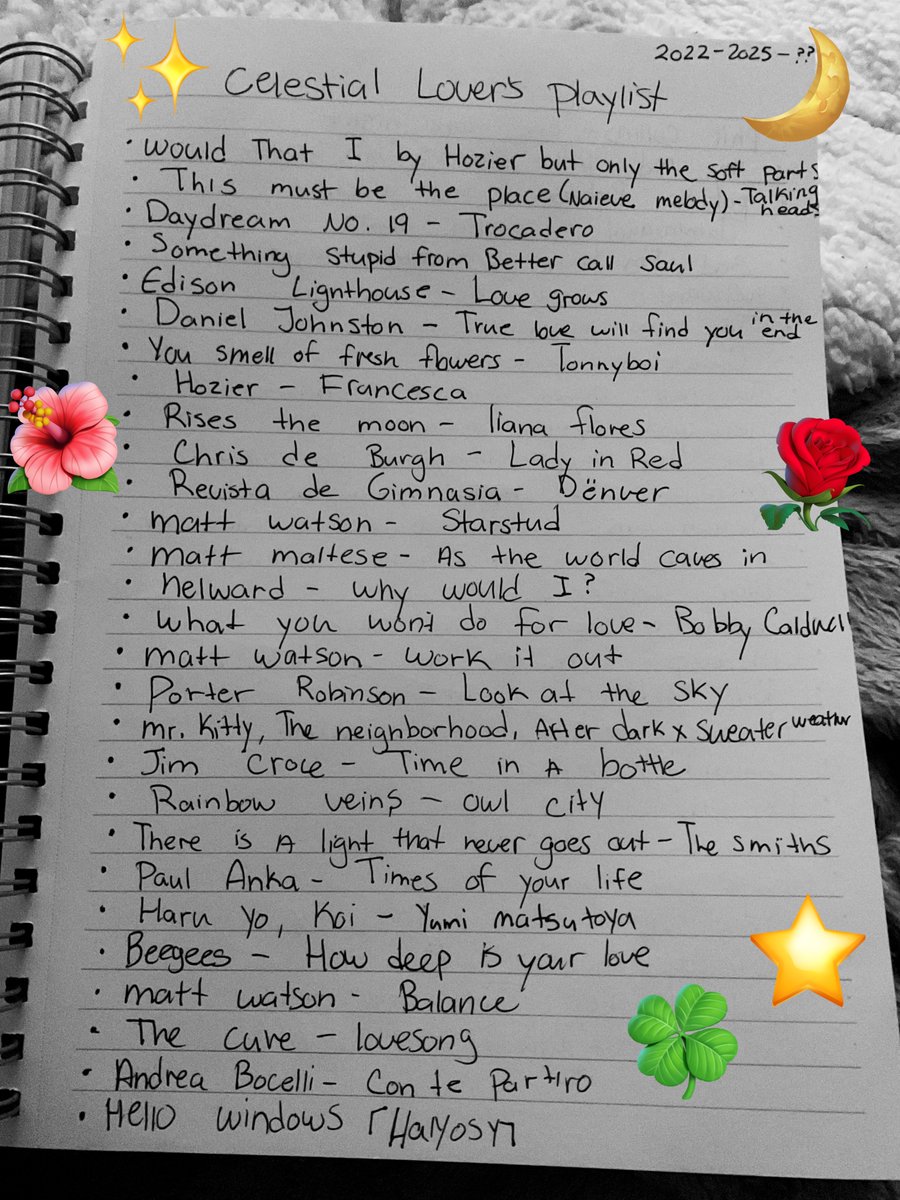 2022-2025-??
Celestial Lover's Playlist
• Would That I by Hozier but only the soft parts
• This must be the place (Naieve melody) - Talking heads
• Daydream No. 19 - Trocadero
• Something Stupid from Better call Saul
• Edison Lignthouse - Love grows
• Daniel Johnston - True love will find you in the end
• You smell of fresh flowers - Tonnyboi
• Hozier - Francesca
• Rises the moon - liana flores
• Chris de Burgh - Lady in Red
• Revista de Gimnasia - Dënver
• matt watson - Starstud
• matt maltese - As the world caves in
• nelward - why would I?
• what you won't do for love - Bobby Caldwell
• matt watson - work it out
• Porter Robinson - Look at the sky
• mr. Kitty, The neighborhood, After dark x Sweater weather
• Jim Croce - Time in A bottle
• Rainbow veins - owl city
• There is A light that never goes out - The smiths
• Paul Anka - Times of your life
• Haru yo, Koi - Yumi matsutoya
• Beegees - How deep is your love
• matt watson - Balance
• The cure - lovesong
• Andrea Bocelli - Con te Partiro
• Hello windows